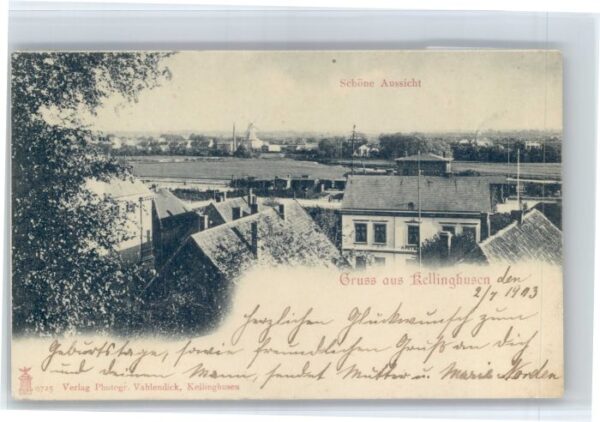 Schöne Aussicht
Gruss aus Kellinghusen
den
2/4 1903
Herzlichen Glückwunsch zum
Geburtstage, sowie freundlichen Gruß an Dich
und deinen Mann, sendet Mutter u. Marie Norden
9725 Verlag Photogr. Vahlendick, Kellinghusen